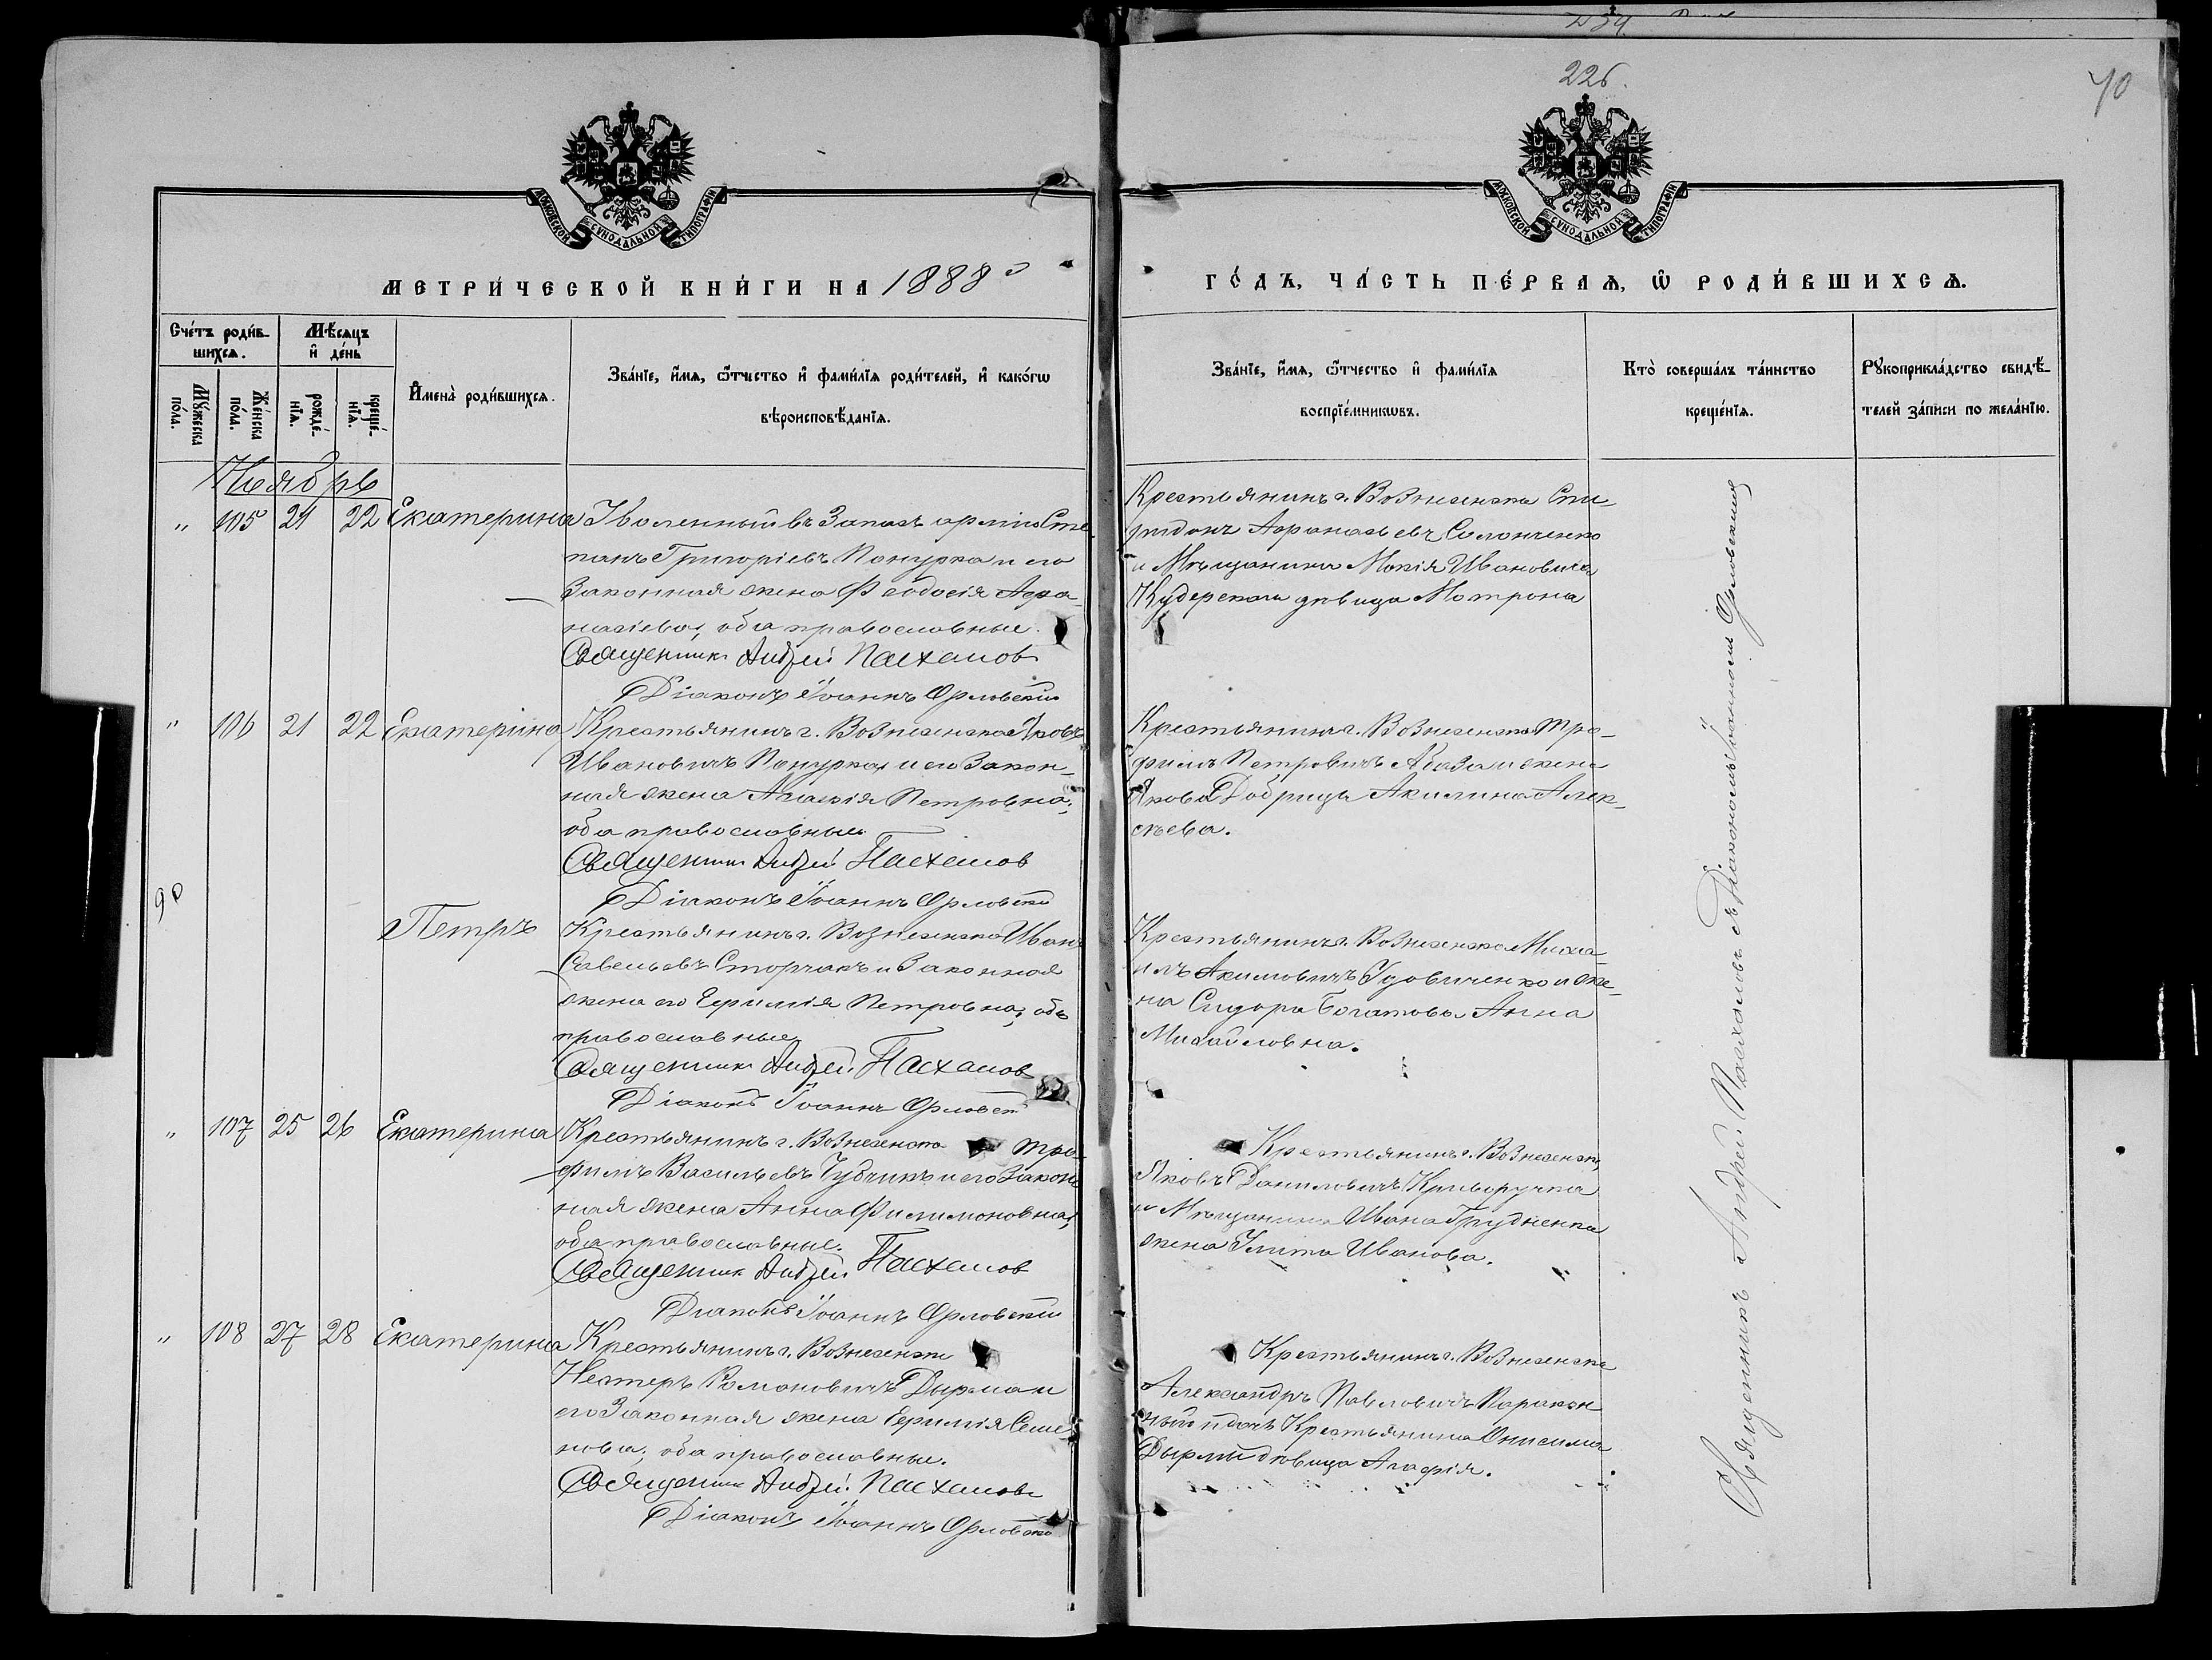 226.
40
МОСКОВСКОЙ СѴНОДАЛЬНОЙ ТИПОГРАФІИ
МОСКОВСКОЙ СѴНОДАЛЬНОЙ ТИПОГРАФІИ
МЕТРИ́ЧЕСКОЙ КНИ́ГИ НА 1888
ГО́ДЪ, ЧА́СТЬ ПЕ́РВАѦ, Ѿ РОДИ́ВШИХСѦ.
Сче́тъ роди́в-
шихсѧ.
Мѣ́сѧцъ
и҆ де́нь
Мꙋ́жеска
по́ла.
Же́нска
по́ла.
рожде́-
нїѧ.
креще́-
нїѧ.
И҆мена̀ роди́вшихсѧ.
Зва́нїе, и҆́мѧ, ѻ҆́тчество и҆ фами́лїѧ роди́телей, и҆ како́гѡ
вѣроисповѣ́данїѧ.
Зва́нїе, и҆́мѧ, ѻ҆́тчество и҆ фами́лїѧ
воспрїе́мникѡвъ.
Кто̀ соверша́лъ та́инство
креще́нїѧ.
Рꙋкоприкла́дство свидѣ́-
телей за́писи по жела́нїю.
Ноябрь
" 105 21 22 Екатерина Уволенный въ Запасъ арміи Сте
панъ Григоріевъ Понурка и его
Законная жена Феодосія Афа-
насіева, оба православные.
Священникъ Андрей Пасхалов
Діаконъ Іоаннъ Орловскій
Крестьянинъ г. Вознесенска Спи-
ридонъ Афанасьевъ Солонченко
и Мѣщанина Мокія Ивановича
Кудерскаго дѣвица Матрона
" 106 21 22 Екатерина Крестьянинъ г. Вознесенска Яковъ
Ивановичъ Понурка и его Закон-
ная жена Агафія Петровна,
оба православные
Священник Андрей Пасхалов
Діаконъ Іоаннъ Орловскій
Крестьянинъ г. Вознесенска Тро-
фимъ Петровичъ Абаза и жена
Якова Добрицы Акилина Алек-
сѣева.
90
Петръ Крестьянинъ г. Вознесенска Иванъ
Савельевъ Сторчакъ и Законная
жена его Ефимія Петровна, оба
православные
Священник Андрей Пасхалов
Діаконъ Іоаннъ Орловскій
Крестьянинъ г. Вознесенска Миха-
илъ Акимовичъ Удовиченко и же-
на Сидора Богатова Анна
Михайловна.
" 107 25 26 Екатерина Крестьянинъ г. Вознесенска Тро-
фимъ Васильевъ Чубчикъ и его Закон
ная жена Анна Филимоновна,
оба православные.
Священник Андрей Пасхалов
Діаконъ Іоаннъ Орловскій
Крестьянинъ г. Вознесенска
Яковъ Даниловичъ Криворучка
и Мѣщанина Ивана Грудненка
жена Улита Иванова.
" 108 27 28 Екатерина Крестьянинъ г. Вознесенска
Нестеръ Романовичъ Дырма и
его Законная жена Ефимія Семе
нова, оба православные.
Священник Андрей Пасхалов
Діаконъ Іоаннъ Орловскій
Крестьянинъ г. Вознесенска
Александръ Павловичъ
и дочь Крестьянина Онисима
Дырмы дѣвица Агафія.
Священникъ Андрей Пасхаловъ съ Діакономъ Іоанномъ Орловскимъ